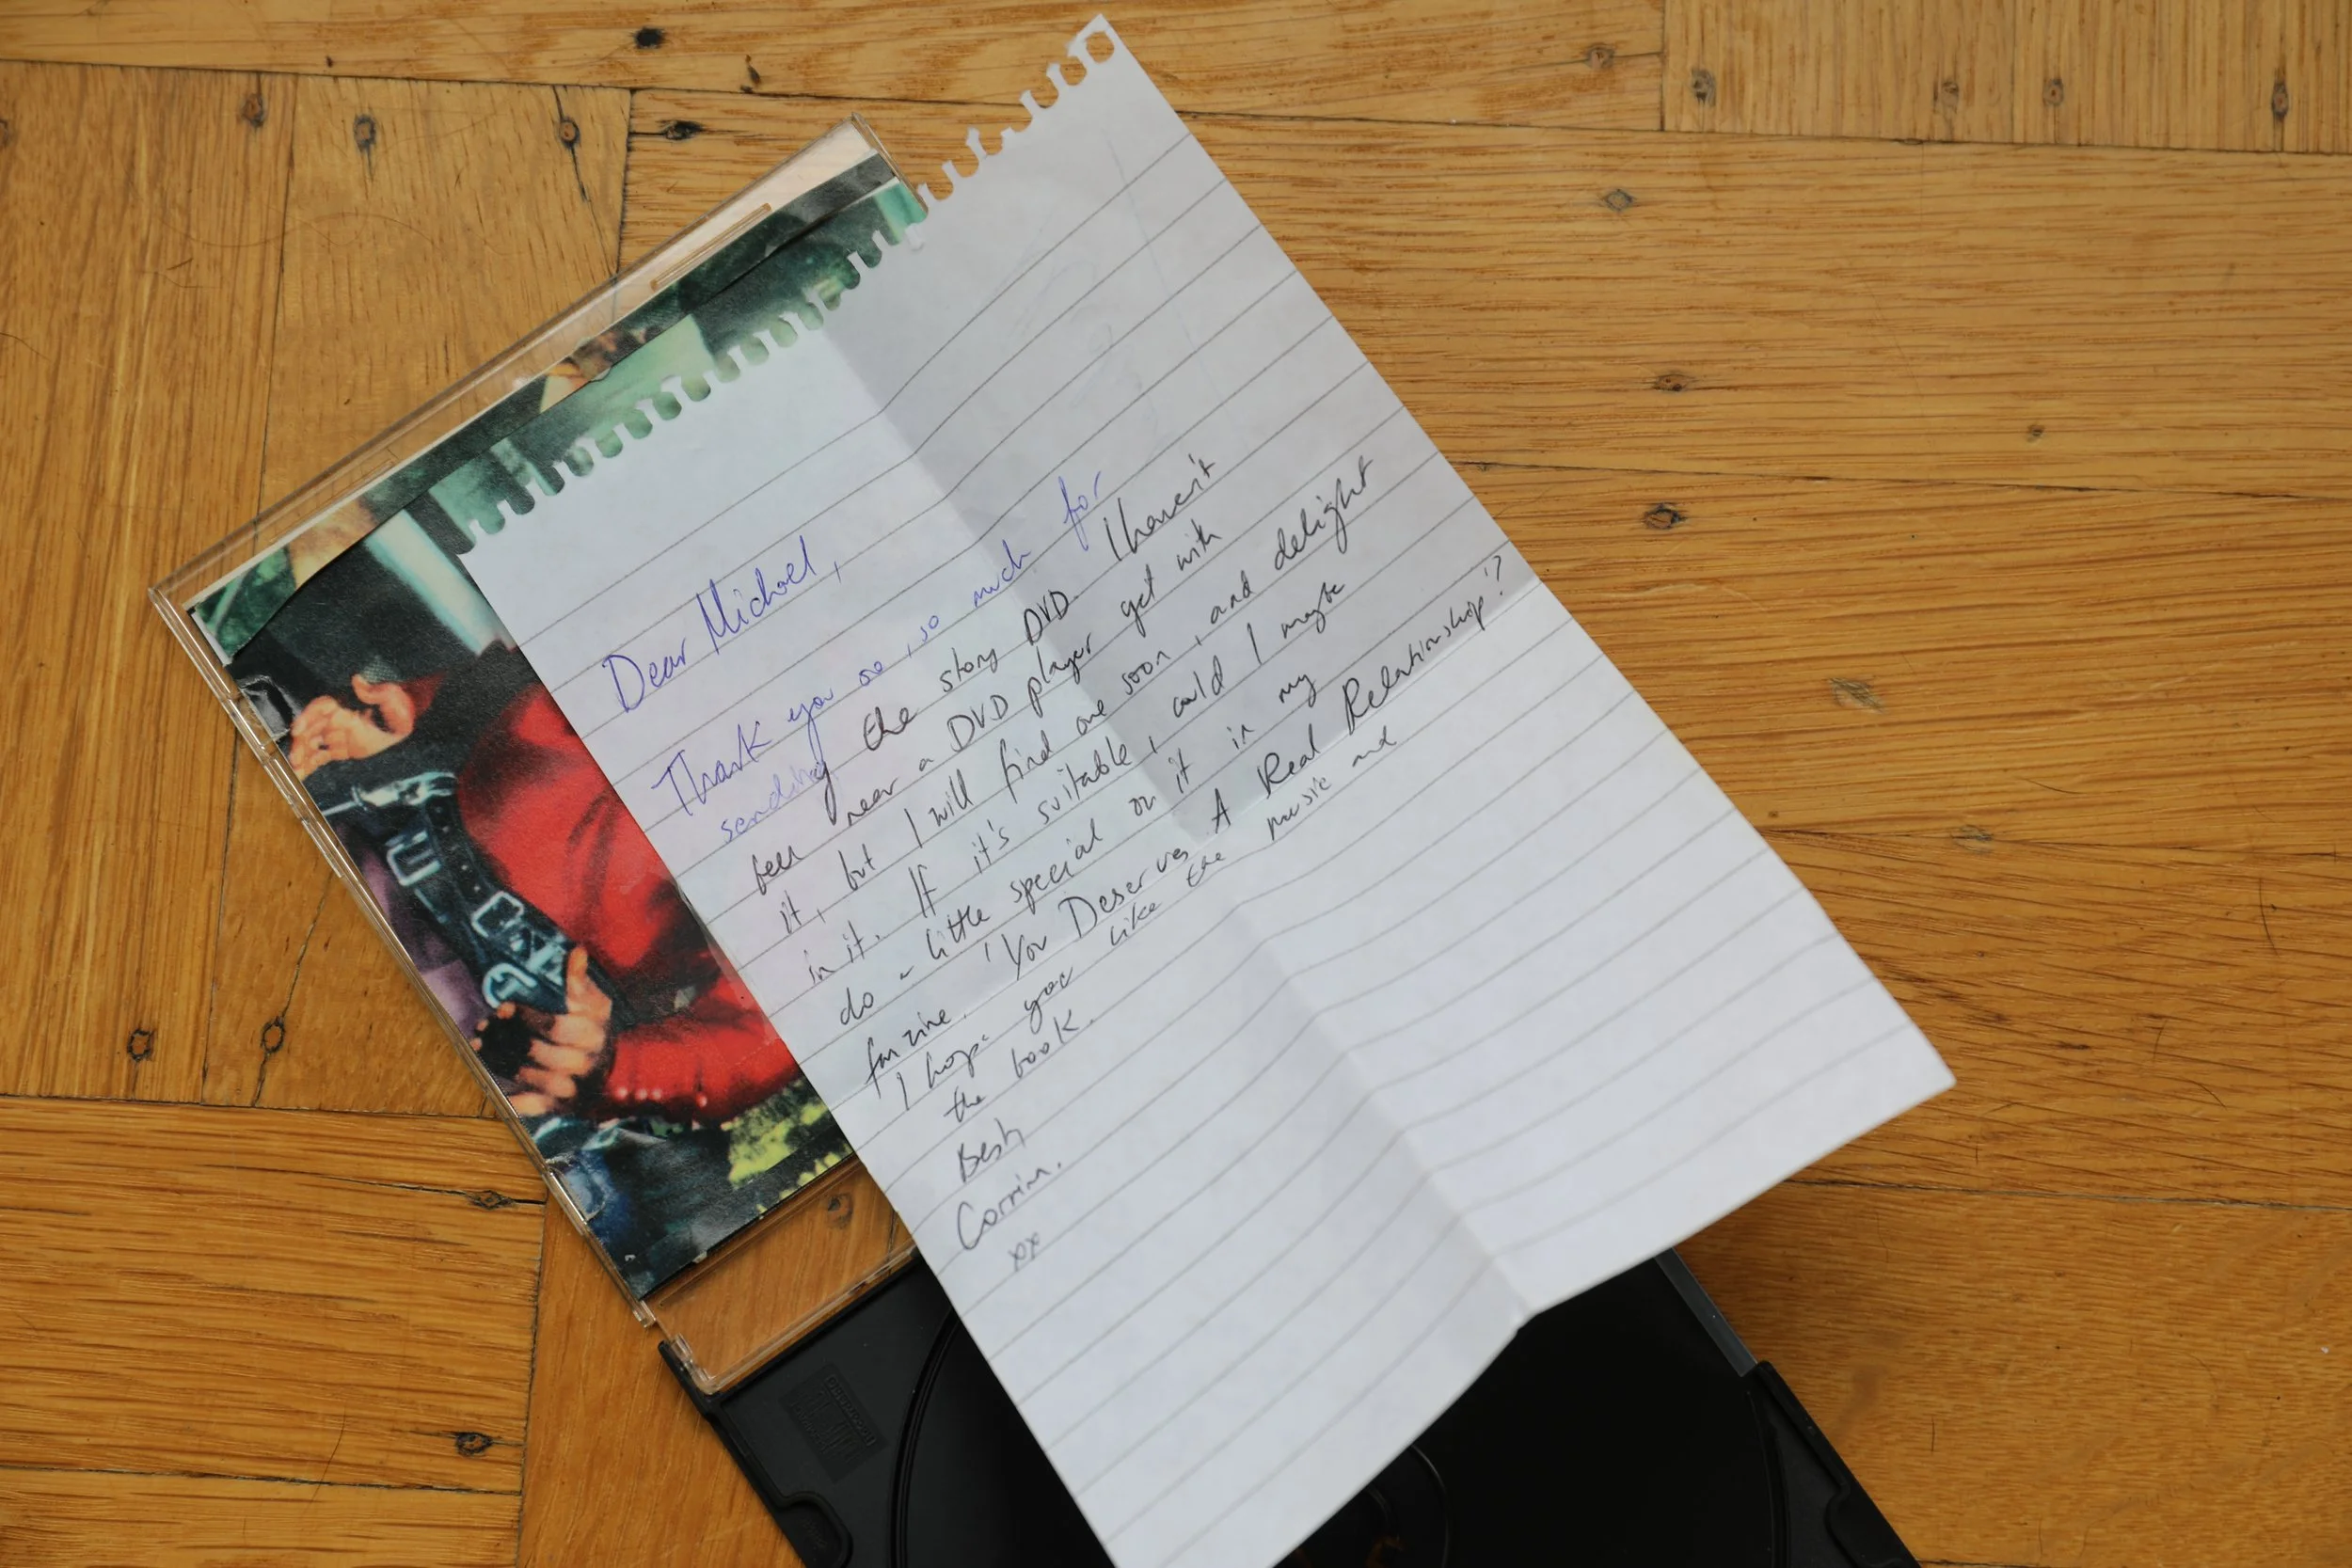 Dear Michael,
Thank you so, so much for
sending the story DVD. I haven't
been near a DVD player yet with
it, but I will find one soon, and delight
in it. If it's suitable, could I maybe
do a little special on it in my
fanzine, 'You Deserve A Real Relationship'?
I hope you like the music and
the book.
Best,
Corrim.
xx